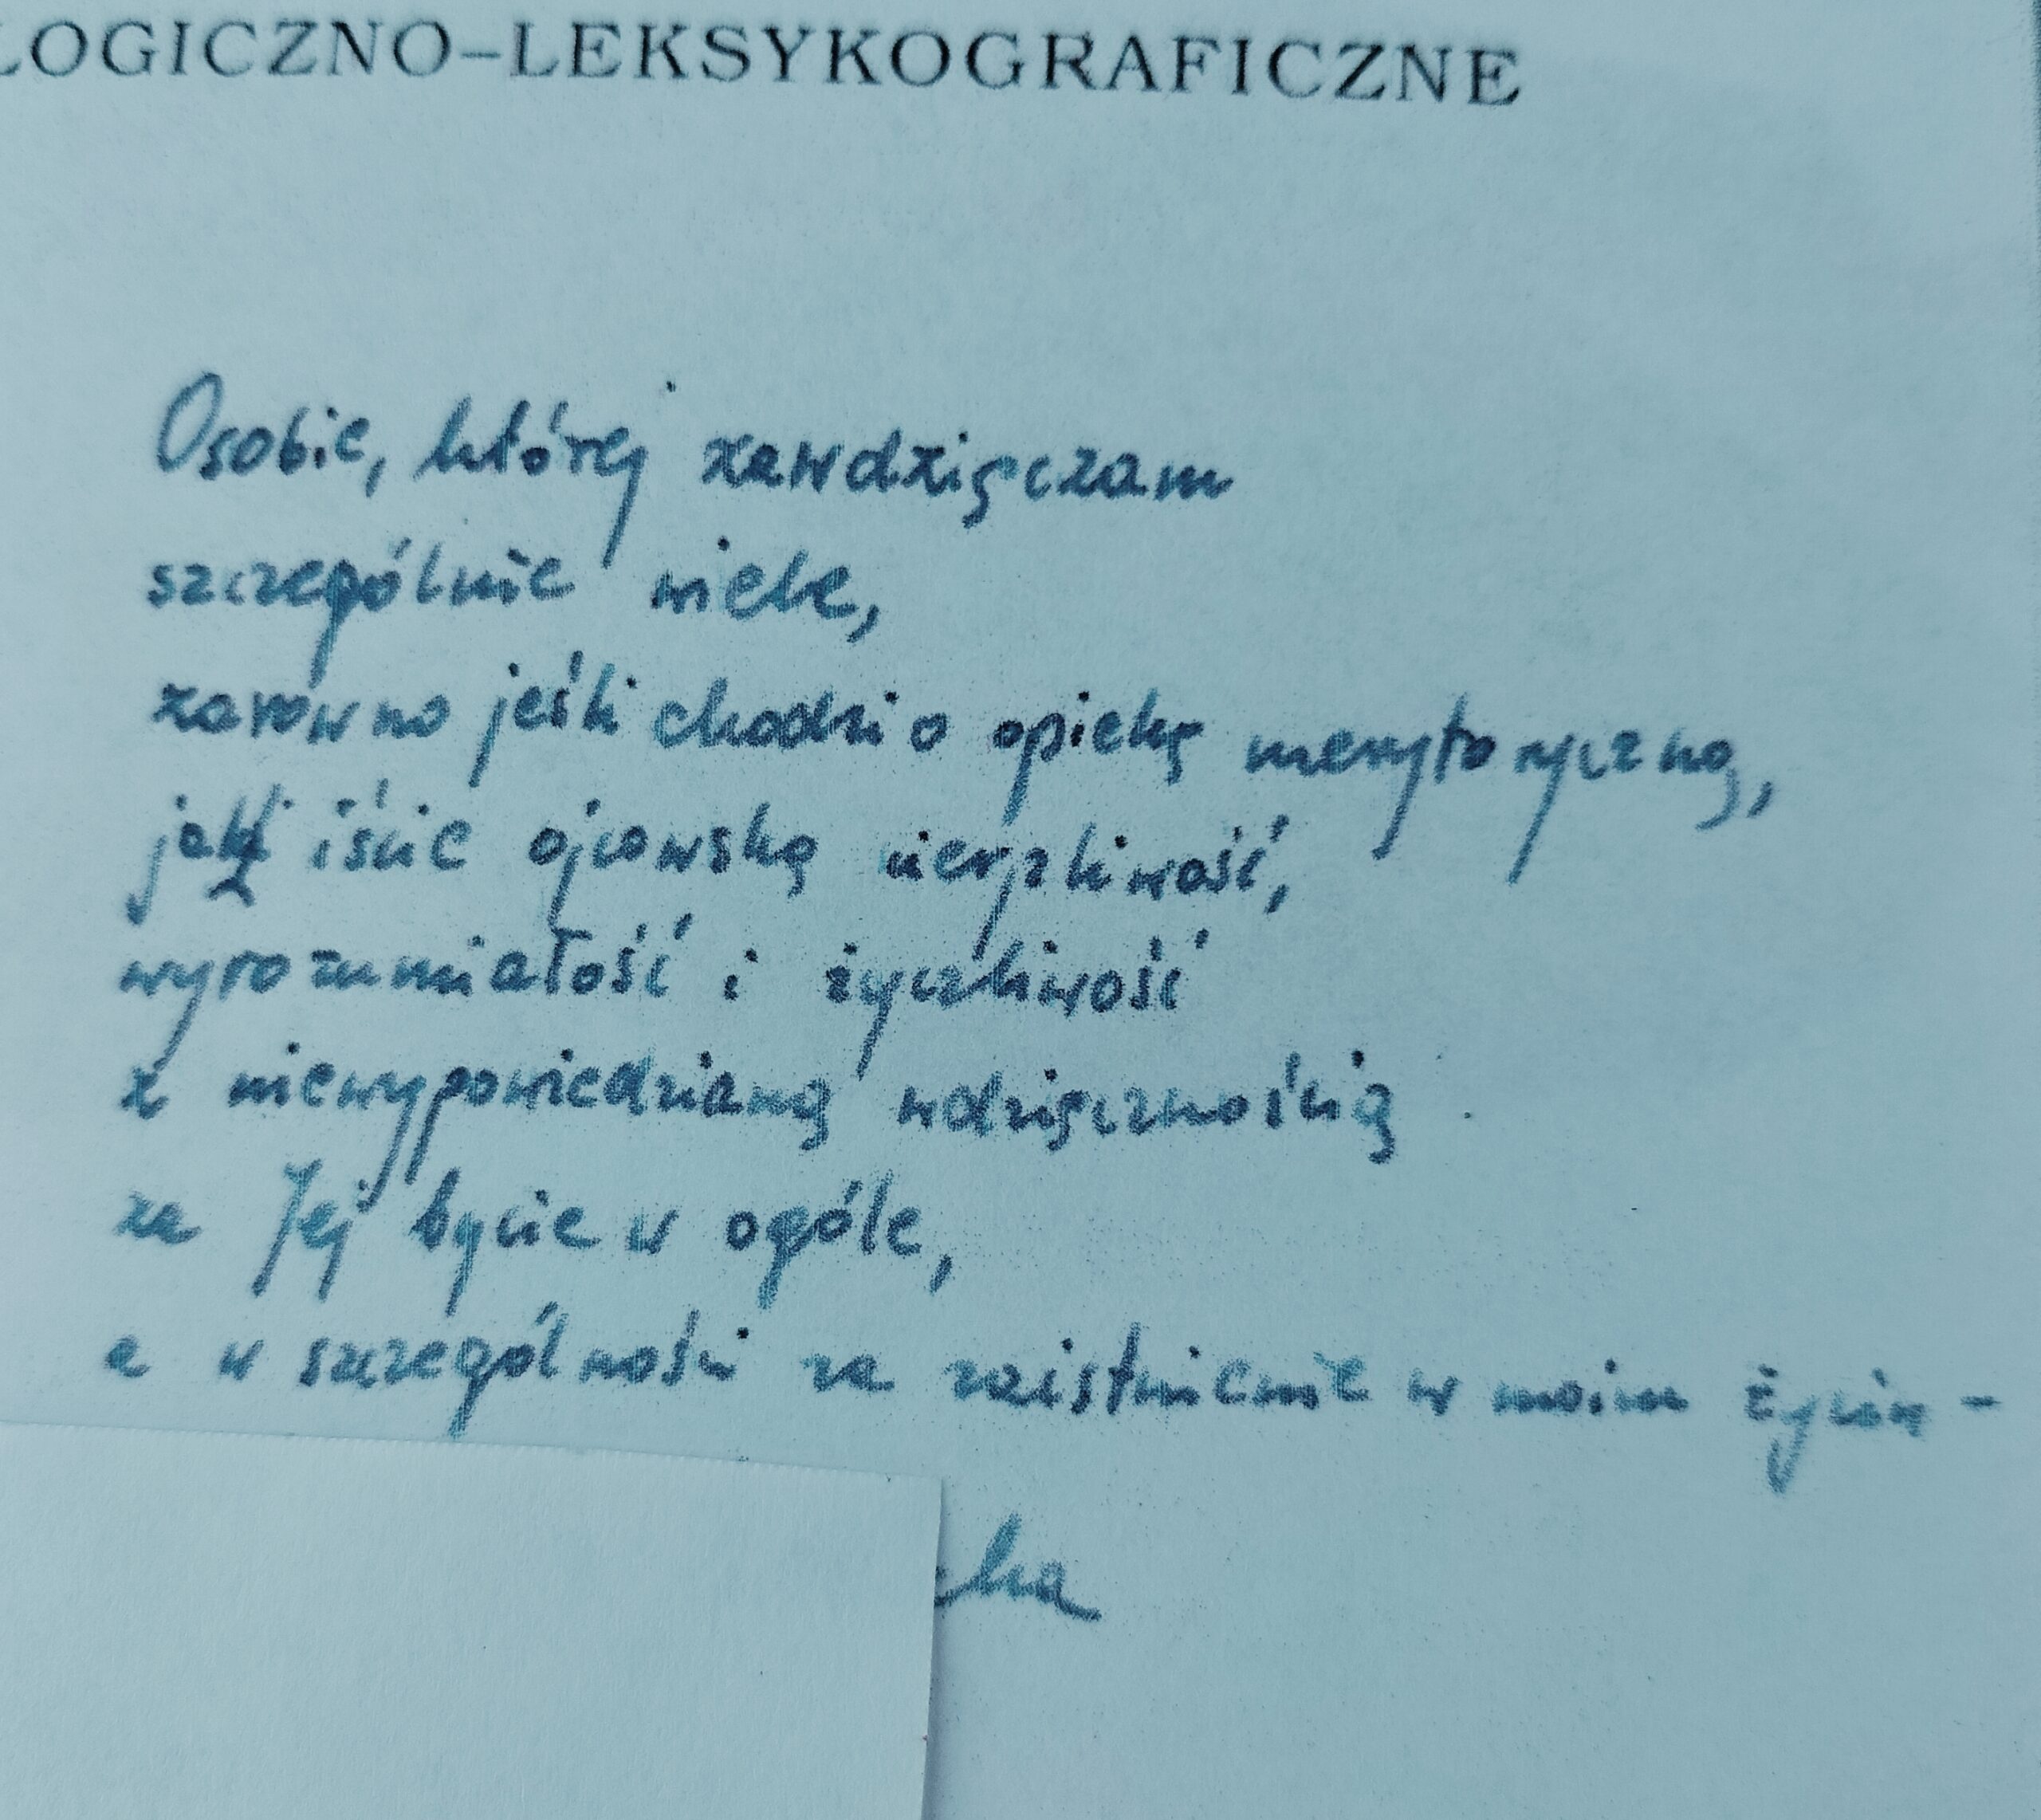 LOGICZNO-LEKSYKOGRAFICZNE
Osobie, której zawdzięczam
szczególnie wiele,
zarówno jeśli chodzi o opiekę merytoryczną,
jak i iście ojcowską cierpliwość,
wyrozumiałość i życzliwość
z niewypowiedzianą wdzięcznością
za Jej bycie w ogóle,
a w szczególności za zaistnienie w moim życiu -